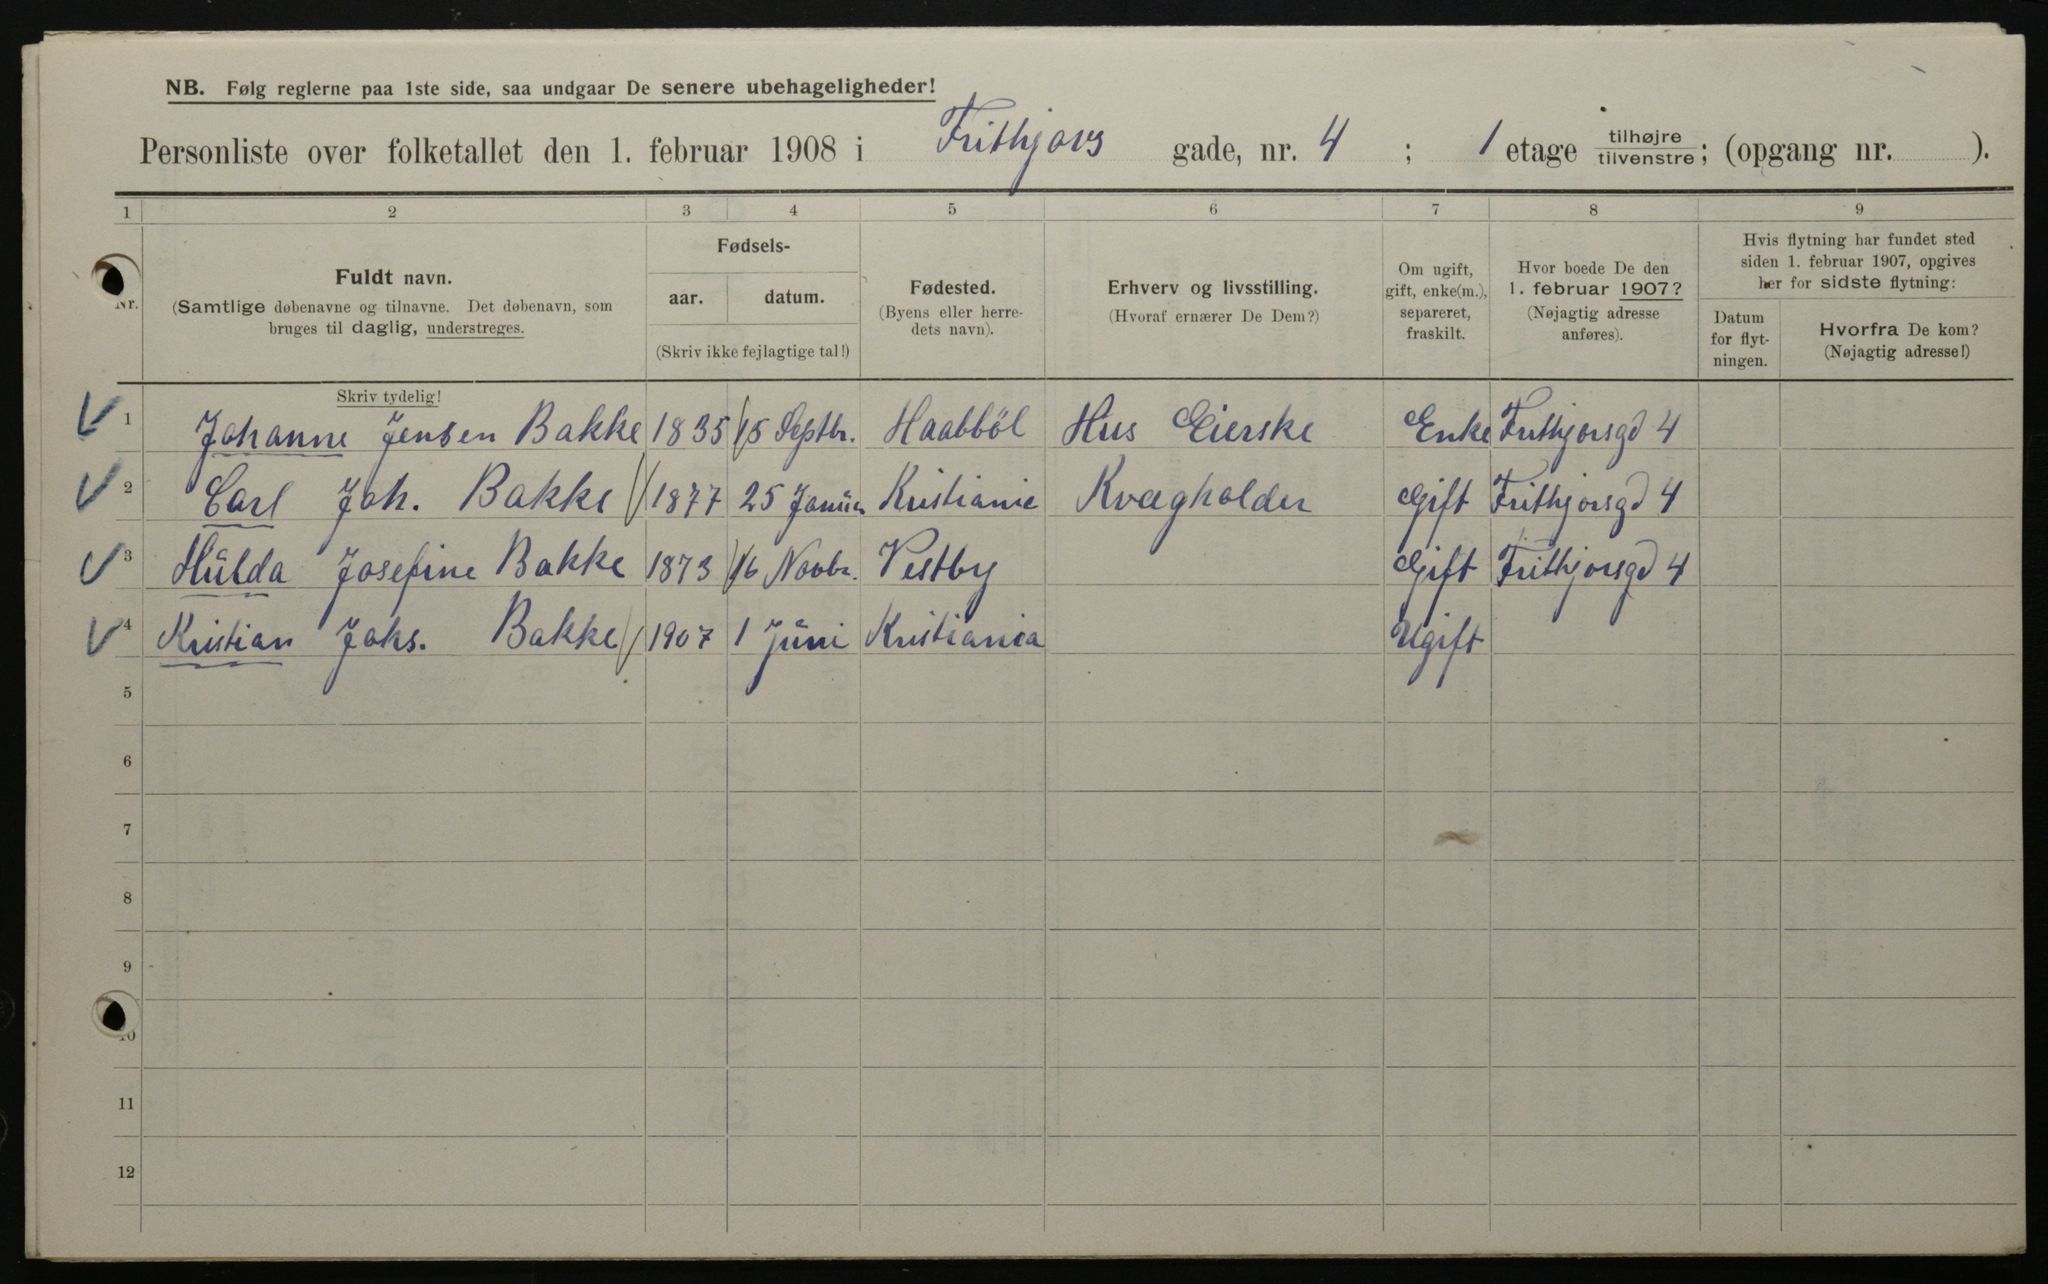 NB. Følg reglerne paa 1ste side, saa undgaar De senere ubehageligheder!
Personliste over folketallet den 1. februar 1908 i Frithjovs gade, nr. 4 ; 1 etage tilhøjre/tilvenstre; (opgang nr. ).
1 2 3 4 5 6 7 8 9
Nr. Fuldt navn. (Samtlige døbenavne og tilnavne. Det døbenavn, som bruges til daglig, understreges.
Fødsels-
aar. datum.
(Skriv ikke fejlagtige tal!)
Fødested. (Byens eller herredets navn).
Erhverv og livsstilling. (Hvoraf ernærer De Dem?)
Om ugift, gift, enke(m.), separeret, fraskilt.
Hvor boede De den 1. februar 1907? (Nøjagtig adresse anføres).
Hvis flytning har fundet sted siden 1. februar 1907, opgives her for sidste flytning:
Datum for flytningen.
Hvorfra De kom? (Nøjagtig adresse!)
Skriv tydelig!
1 Johanne Jensen Bakke 1835 15 Septbr. Haabböl Hus Eierske Enke Frithjovsgd 4
2 Carl Joh. Bakke 1877 25 Januar Kristiania Kvægholder Gift Frithjovsgd 4
3 Hulda Josefine Bakke 1873 16 Novbr. Vestby Gift Frithjovsgd 4
4 Kristian Johs. Bakke 1907 1 Juni Kristiania Ugift
5
6
7
8
9
10
11
12